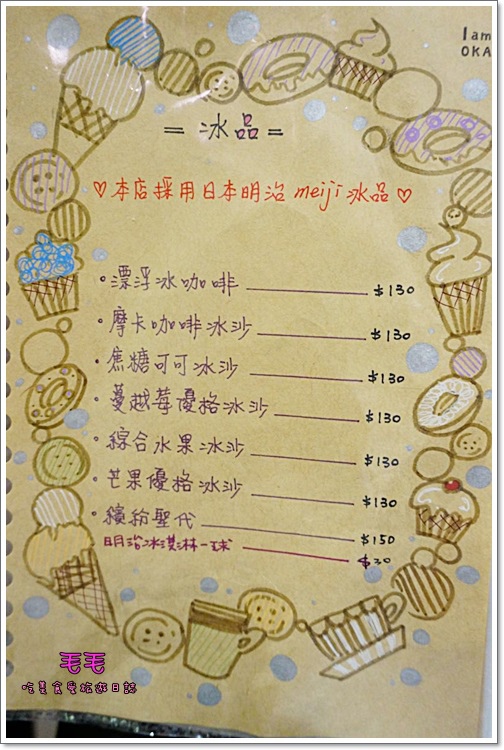 I am
OKA
= 冰品 =
♡本店採用日本明治 meiji 冰品♡
·漂浮冰咖啡 $130
·摩卡咖啡冰沙 $130
·焦糖可可冰沙 $130
·蔓越莓優格冰沙 $130
·綜合水果冰沙 $130
·芒果優格冰沙 $130
·繽紛聖代 $150
明治冰淇淋一球 $30
毛毛
吃美食愛旅遊日誌